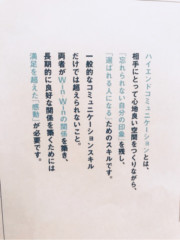 ハイエンドコミュニケーションとは、
相手にとって心地良い空間をつくりながら、
「忘れられない自分の印象」を残し、
「選ばれる人になる」ためのスキルです。
一般的なコミュニケーションスキル
だけでは越えられないこと。
両者がWin Winの関係を築き、
長期的に良好な関係を築くためには
満足を超えた「感動」が必要です。